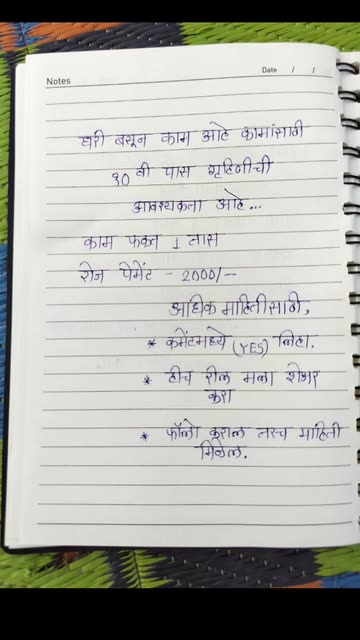 Notes
Date / /
घरी बसून काम आहे कामांसाठी
१० वी पास गृहिणीची
आवश्यकता आहे...
काम फक्त 1 तास
रोज पेमेंट - 2000/-
अधिक माहितीसाठी,
* कमेंटमध्ये (YES) लिहा.
* हीच रील मला शेअर
करा
* फॉलो कराल तरच माहिती
मिळेल.